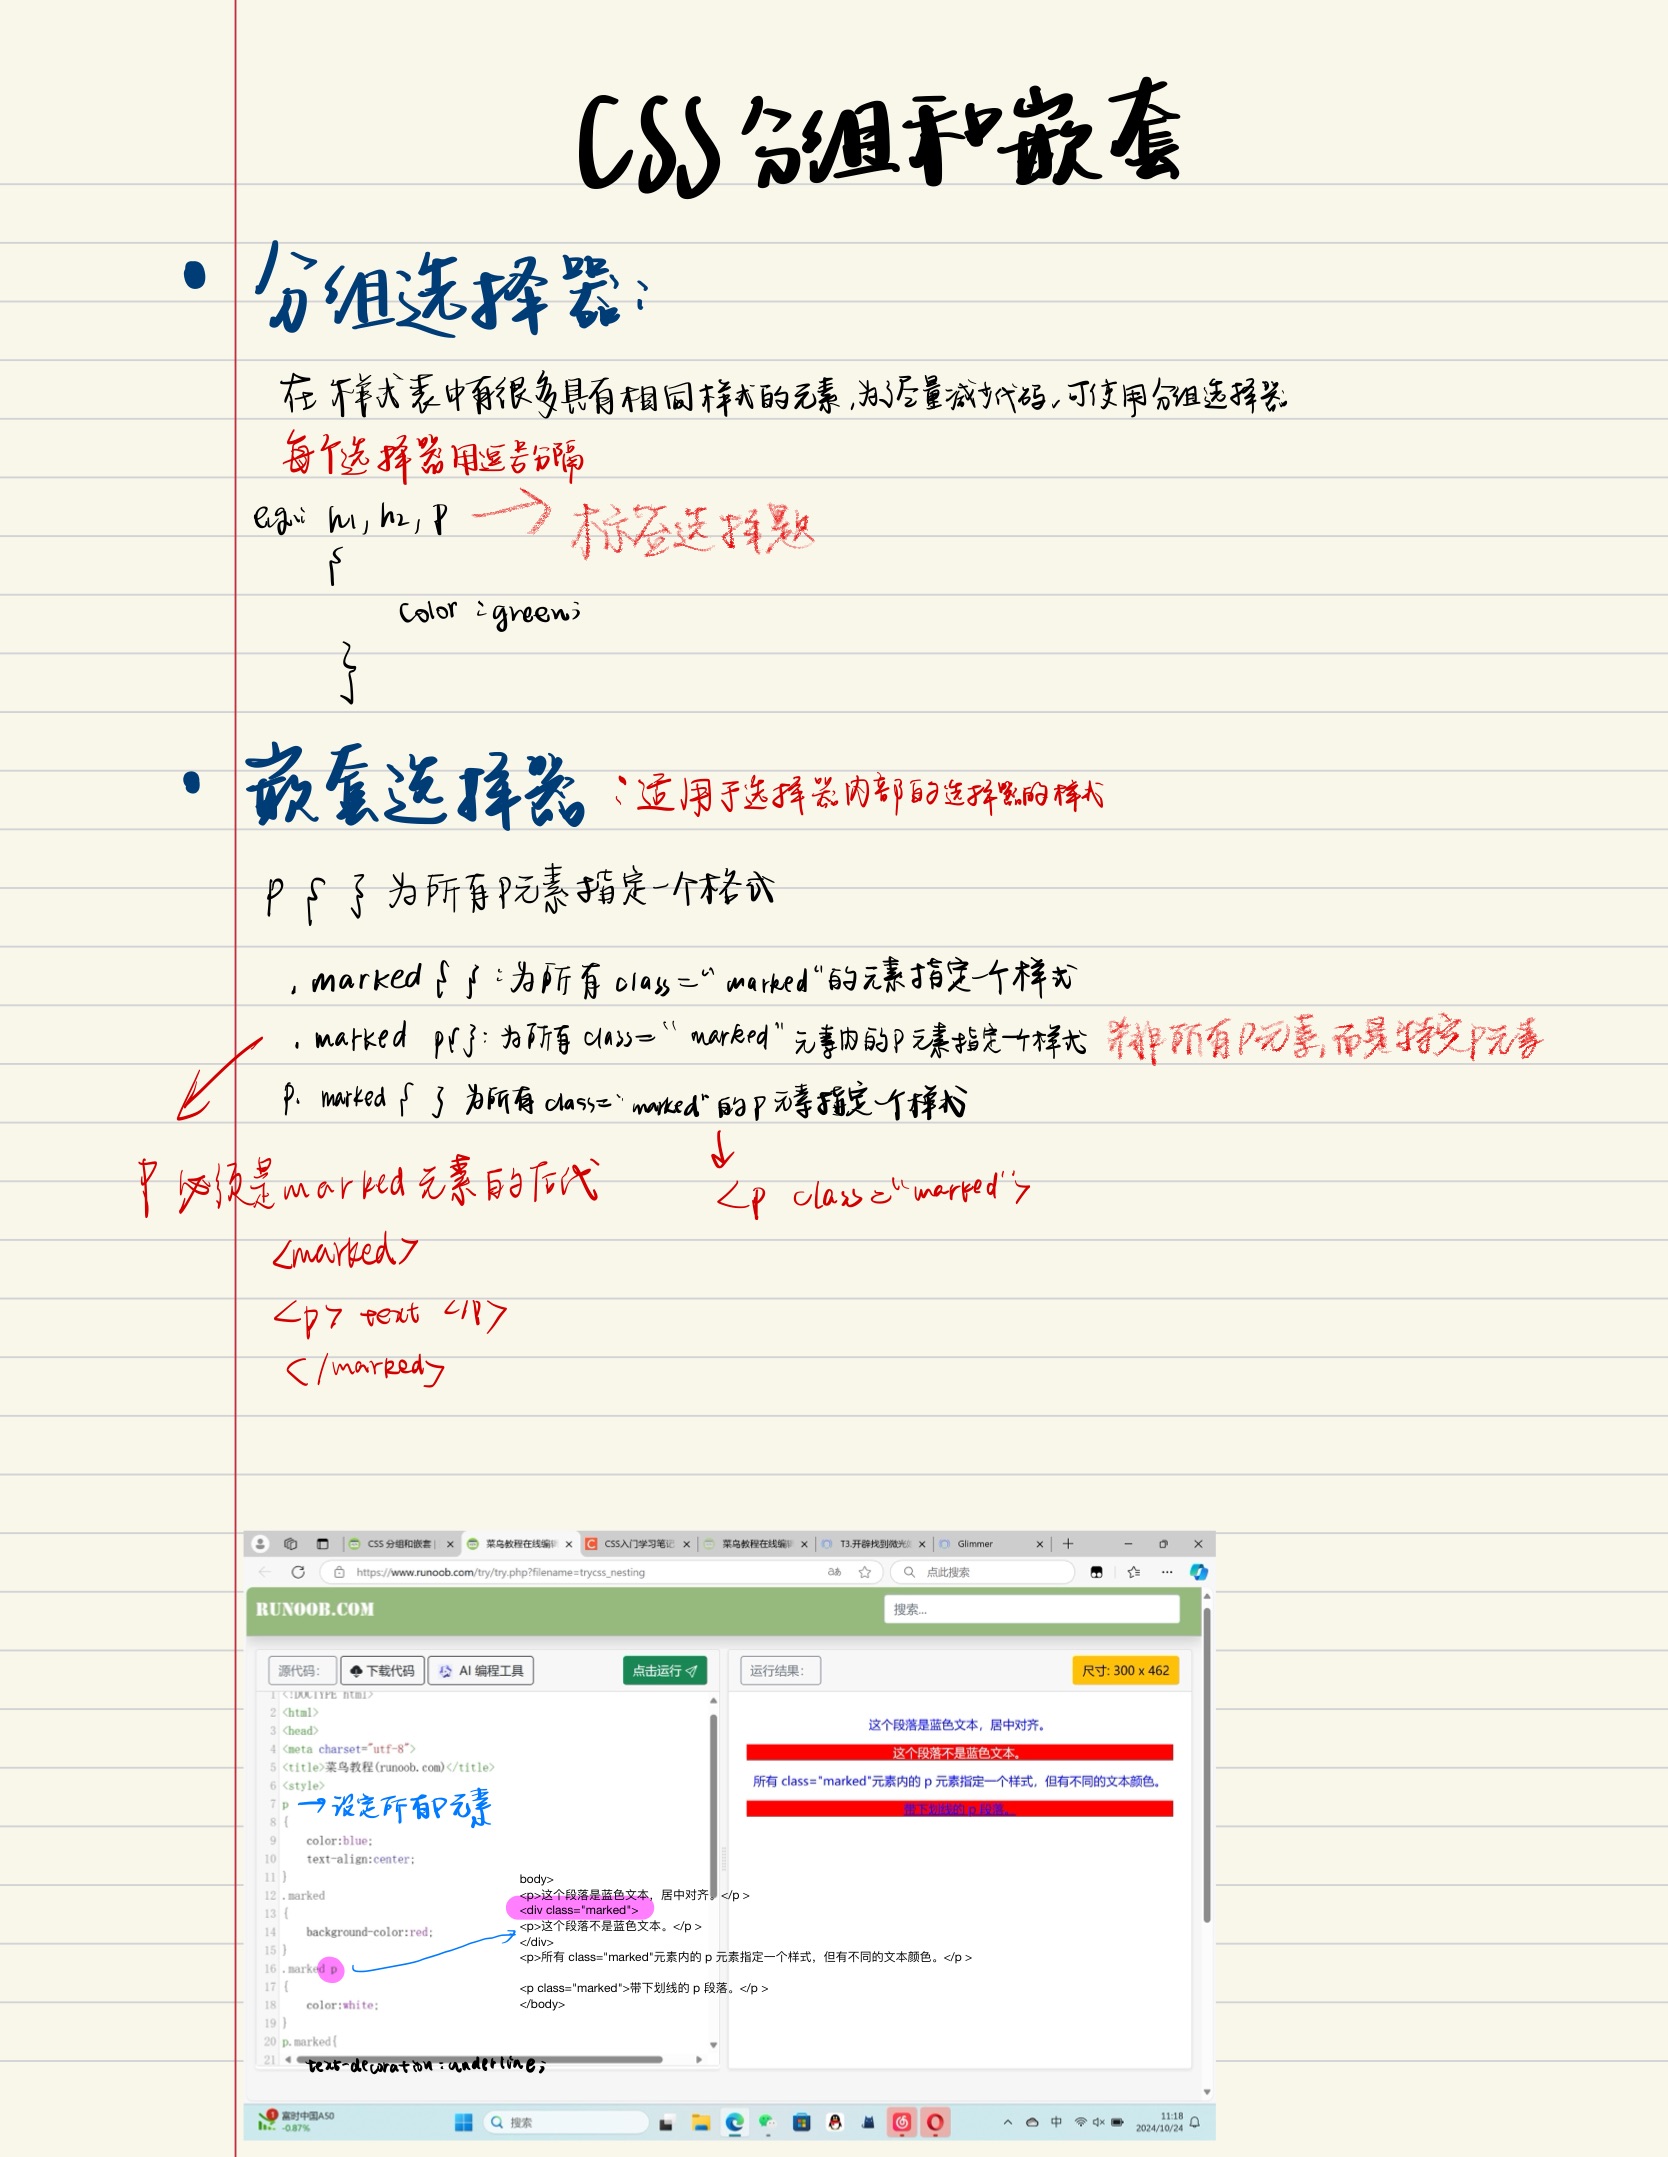 CSS分组和嵌套
• 分组选择器：
在样式表中有很多具有相同样式的元素,为了尽量减少代码,可使用分组选择器
每个选择器用逗号分隔
e.g.: h1, h2, p → 标签选择题
{
color :green;
}
• 嵌套选择器 :适用于选择器内部的选择器的样式
p { } 为所有p元素指定一个格式
. marked { } :为所有class="marked"的元素指定一个样式
. marked p{ }: 为所有class="marked"元素内的p元素指定一个样式 并非所有p元素,而是特定p元素
p. marked { } 为所有class="marked"的p元素指定一个样式
p 必须是marked元素的后代
<p class="marked">
<marked>
<p> text </p>
</marked>
CSS 分组和嵌套 | 菜鸟教程在线编辑 CSS入门学习笔记 菜鸟教程在线编辑 T3.开辟找到微光 Glimmer
https://www.runoob.com/try/try.php?filename=trycss_nesting 点此搜索
RUNOOB.COM 搜索...
源代码： 下载代码 AI 编程工具 点击运行 运行结果： 尺寸: 300 x 462
1 <!DOCTYPE html>
2 <html>
3 <head>
4 <meta charset="utf-8">
5 <title>菜鸟教程(runoob.com)</title>
6 <style>
7 p → 设定所有P元素
8 {
9 color:blue;
10 text-align:center;
11 }
12 .marked
13 {
14 background-color:red;
15 }
16 .marked p
17 {
18 color:white;
19 }
20 p.marked{
21 text-decoration:underline;
body>
<p>这个段落是蓝色文本，居中对齐。</p >
<div class="marked">
<p>这个段落不是蓝色文本。</p >
</div>
<p>所有 class="marked"元素内的 p 元素指定一个样式，但有不同的文本颜色。</p >
<p class="marked">带下划线的 p 段落。</p >
</body>
这个段落是蓝色文本，居中对齐。
这个段落不是蓝色文本。
所有 class="marked"元素内的 p 元素指定一个样式，但有不同的文本颜色。
带下划线的 p 段落。
富时中国A50
-0.87%
搜索
中
11:18
2024/10/24